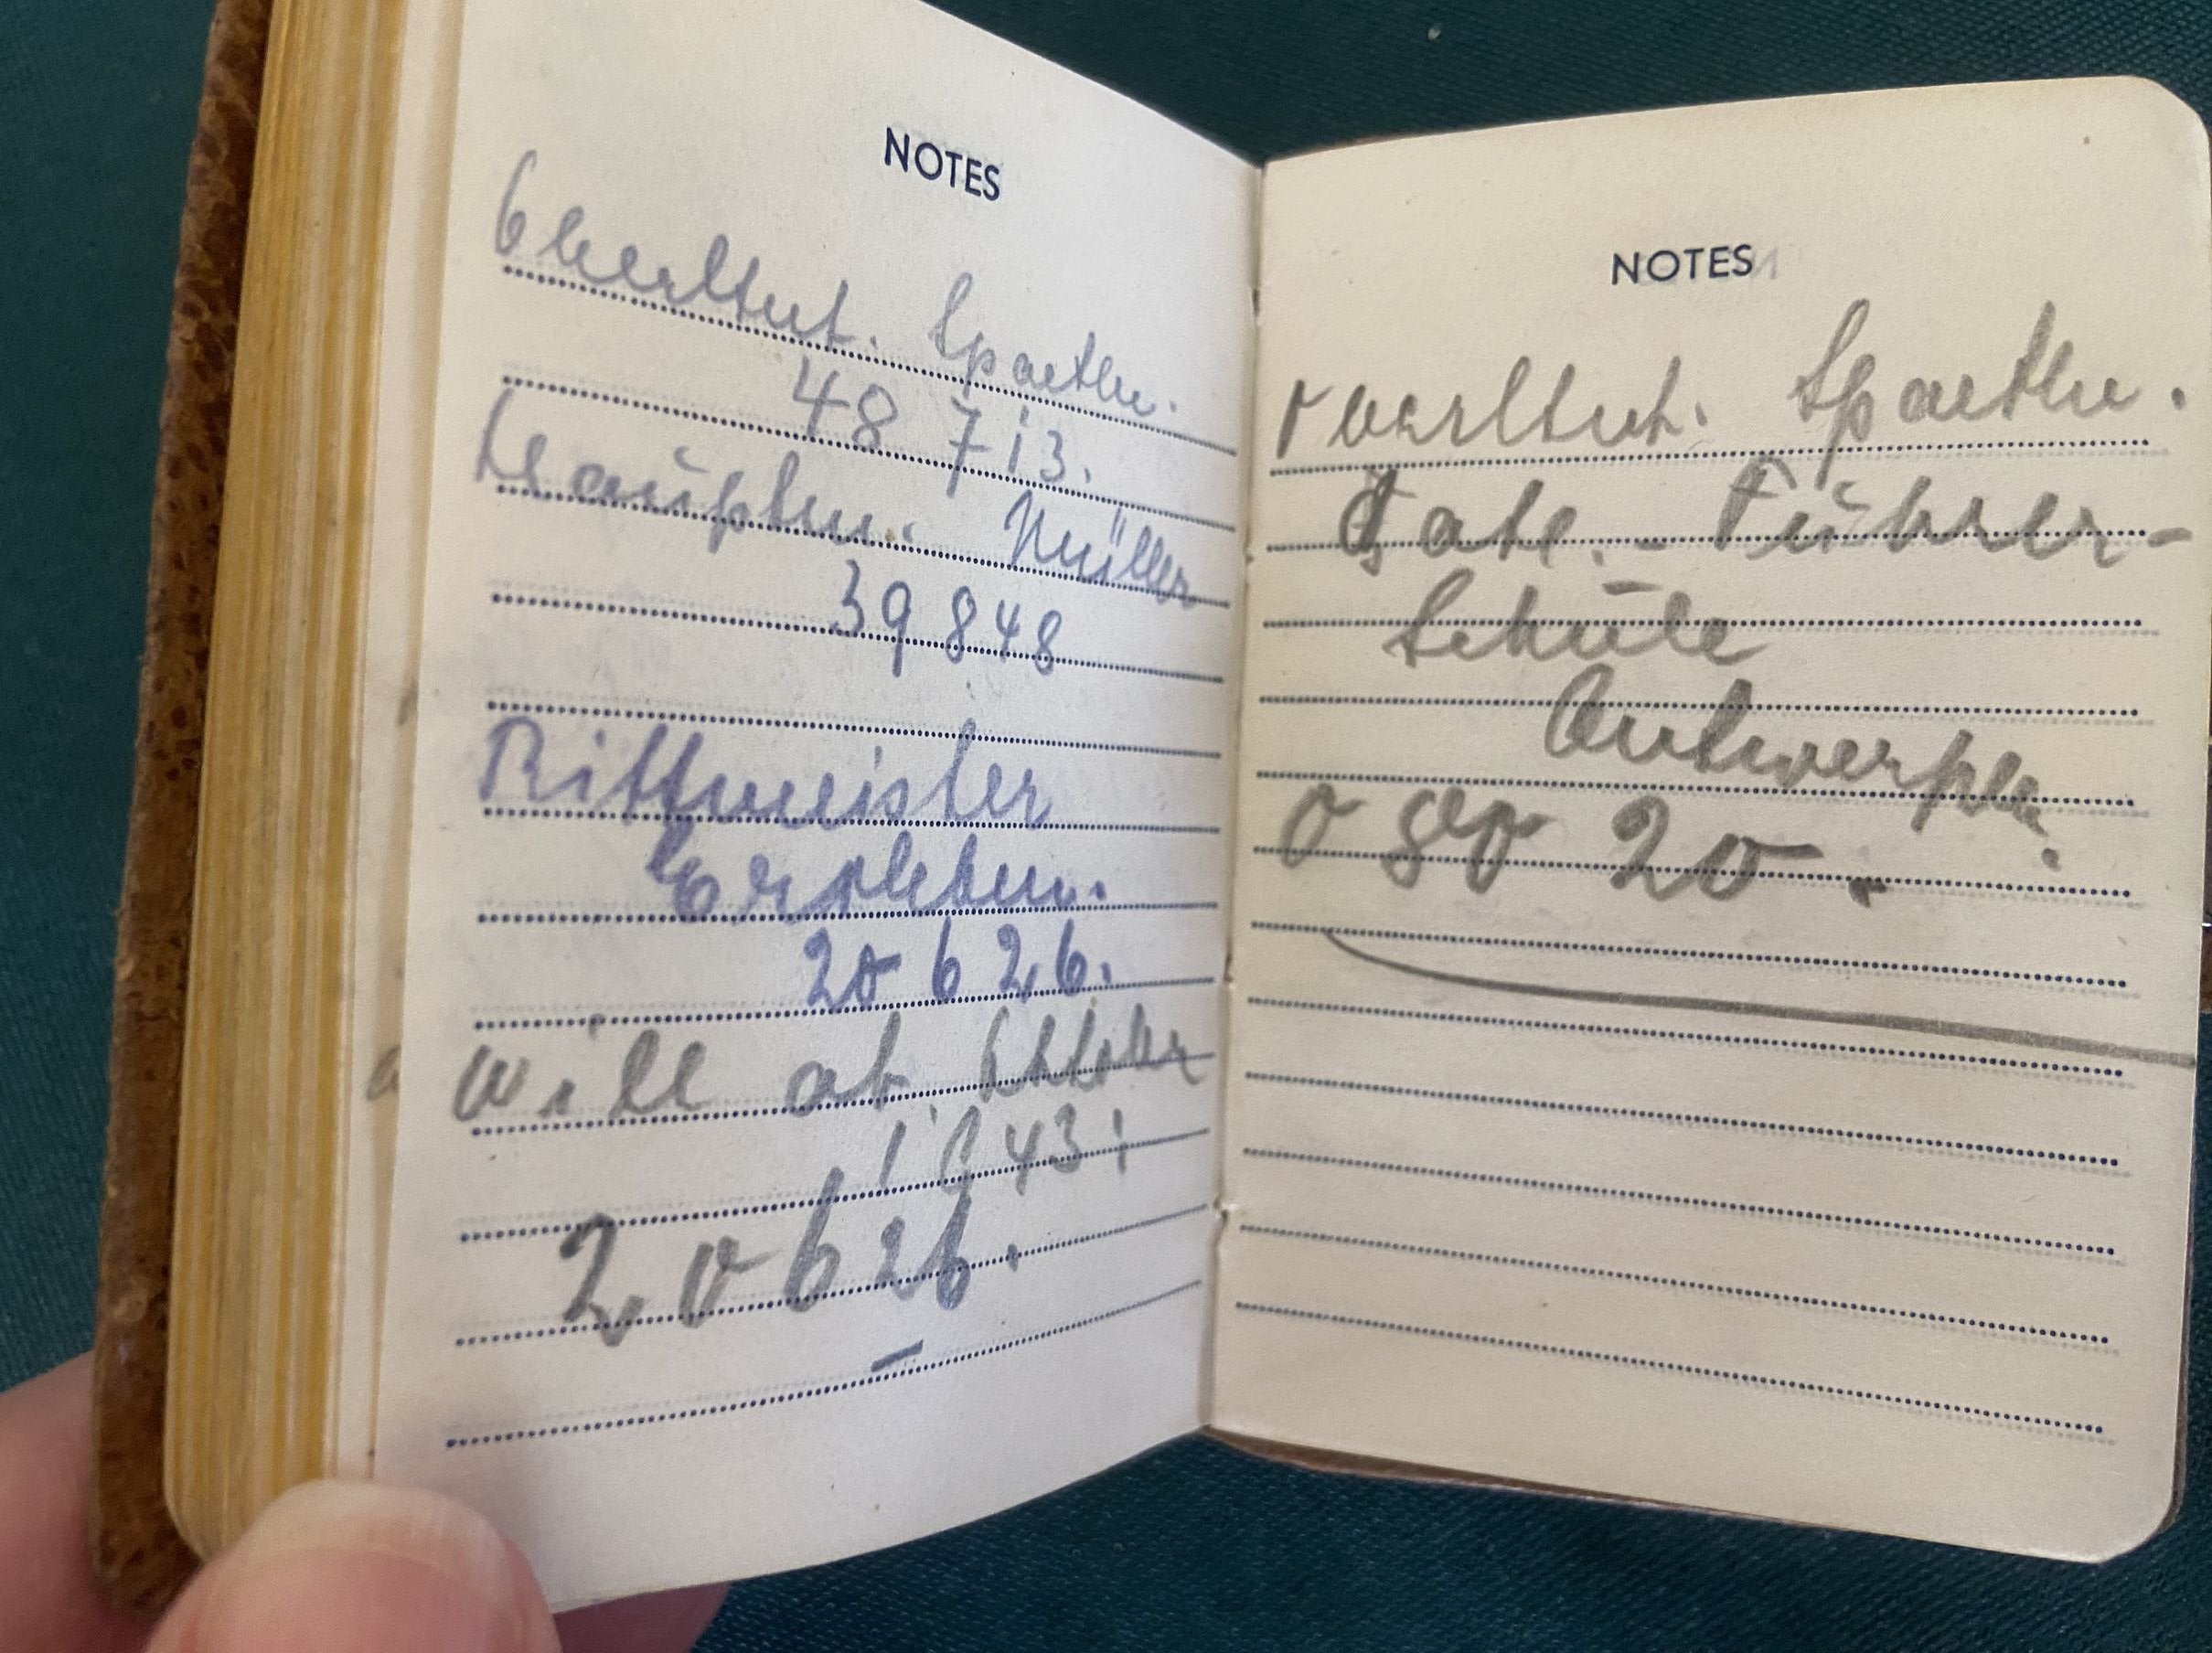 NOTES
Oberltnt. Spaethe.
48 713.
Hauptm. Müller
39848
Rittmeister
Erxleben.
20 626.
will ab Oktober
1943:
20626.
NOTES
Oberltnt. Spaethe.
Führer-
Schule
Antwerpen.
0 80 20.